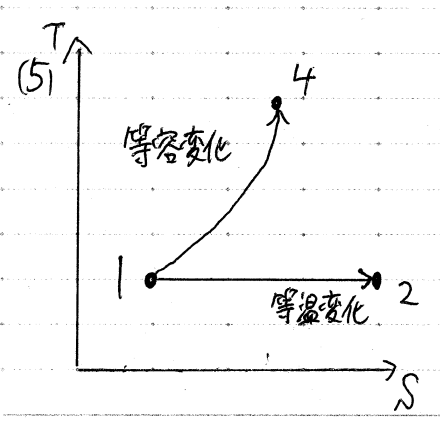 T
(5)
4
等容変化
1
2
等温変化
S